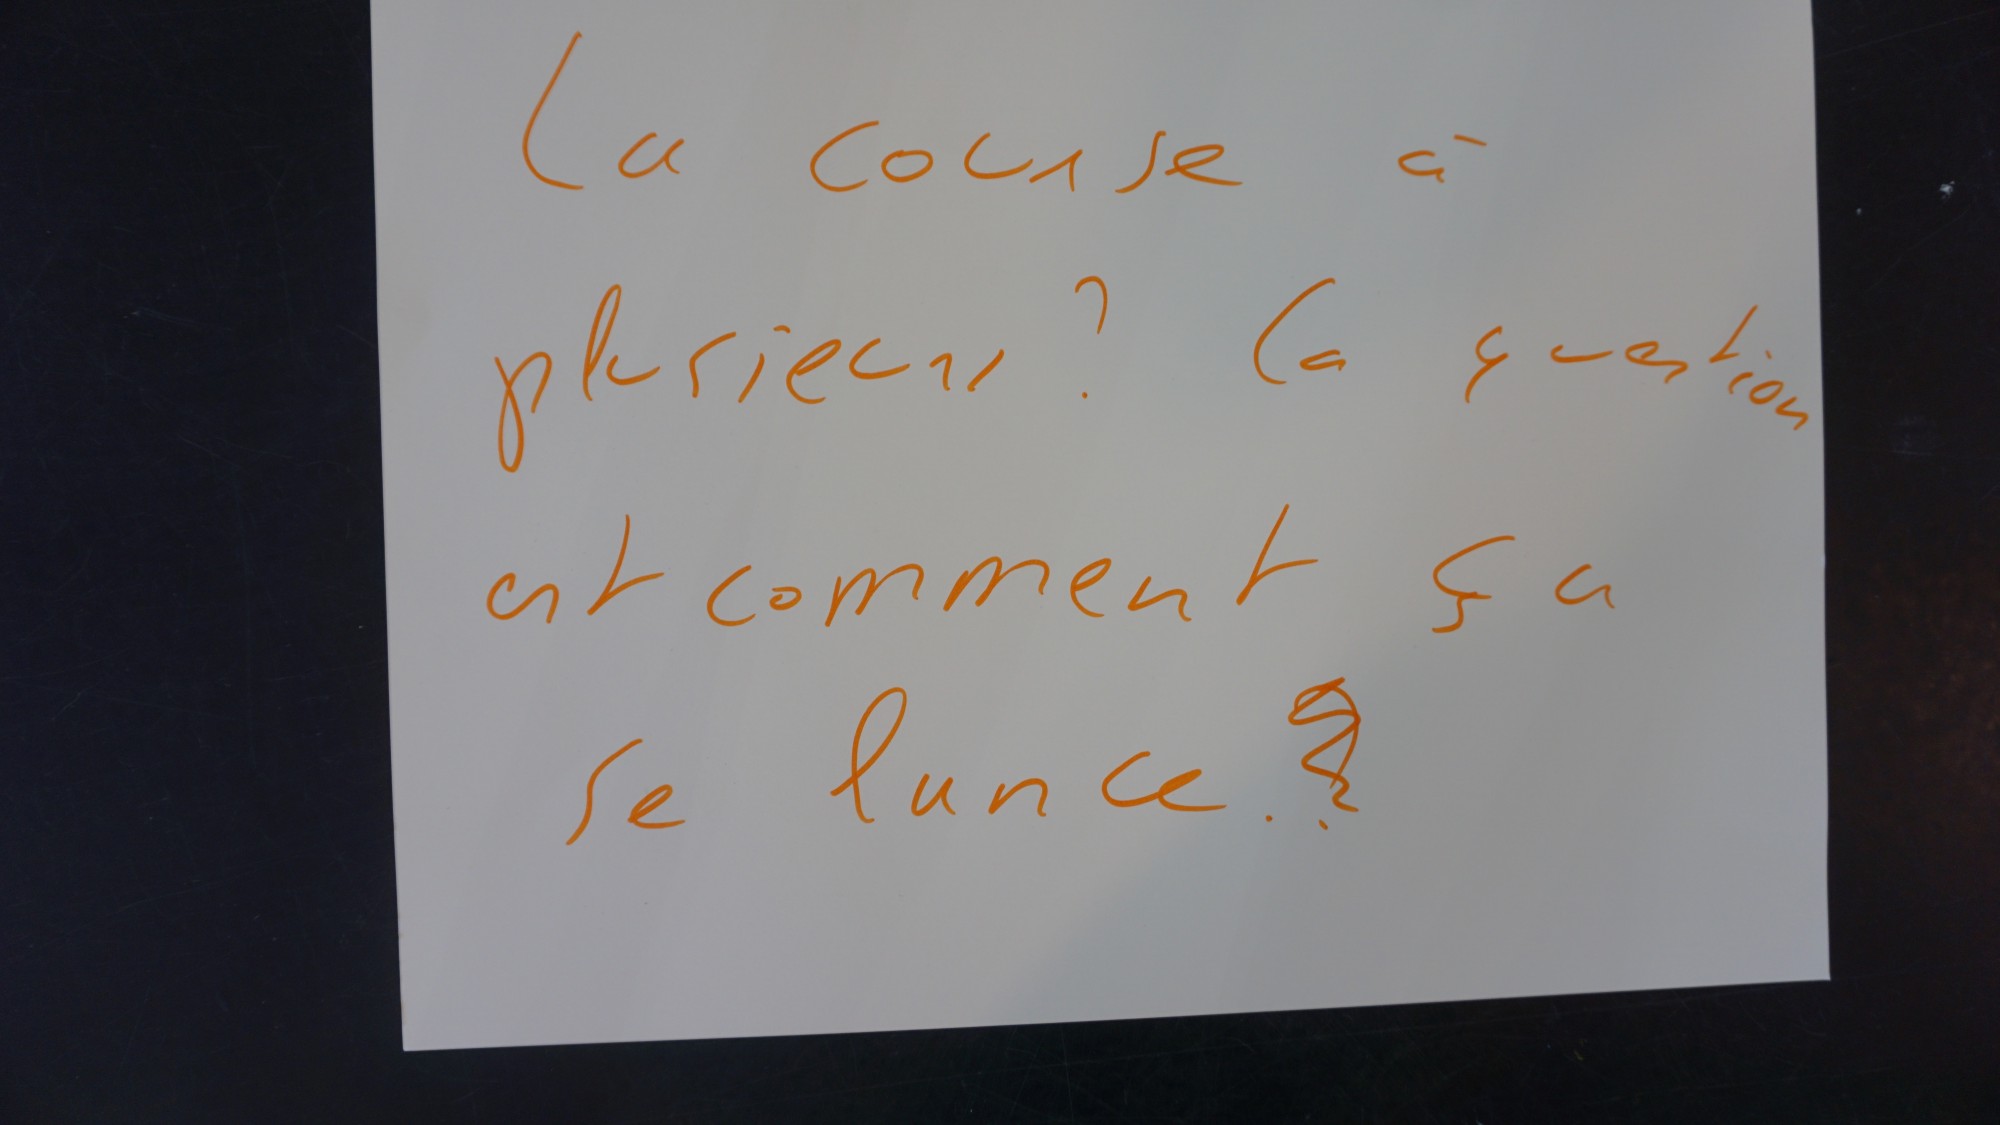 La course à
plusieurs? La question
est comment ça
se lance.